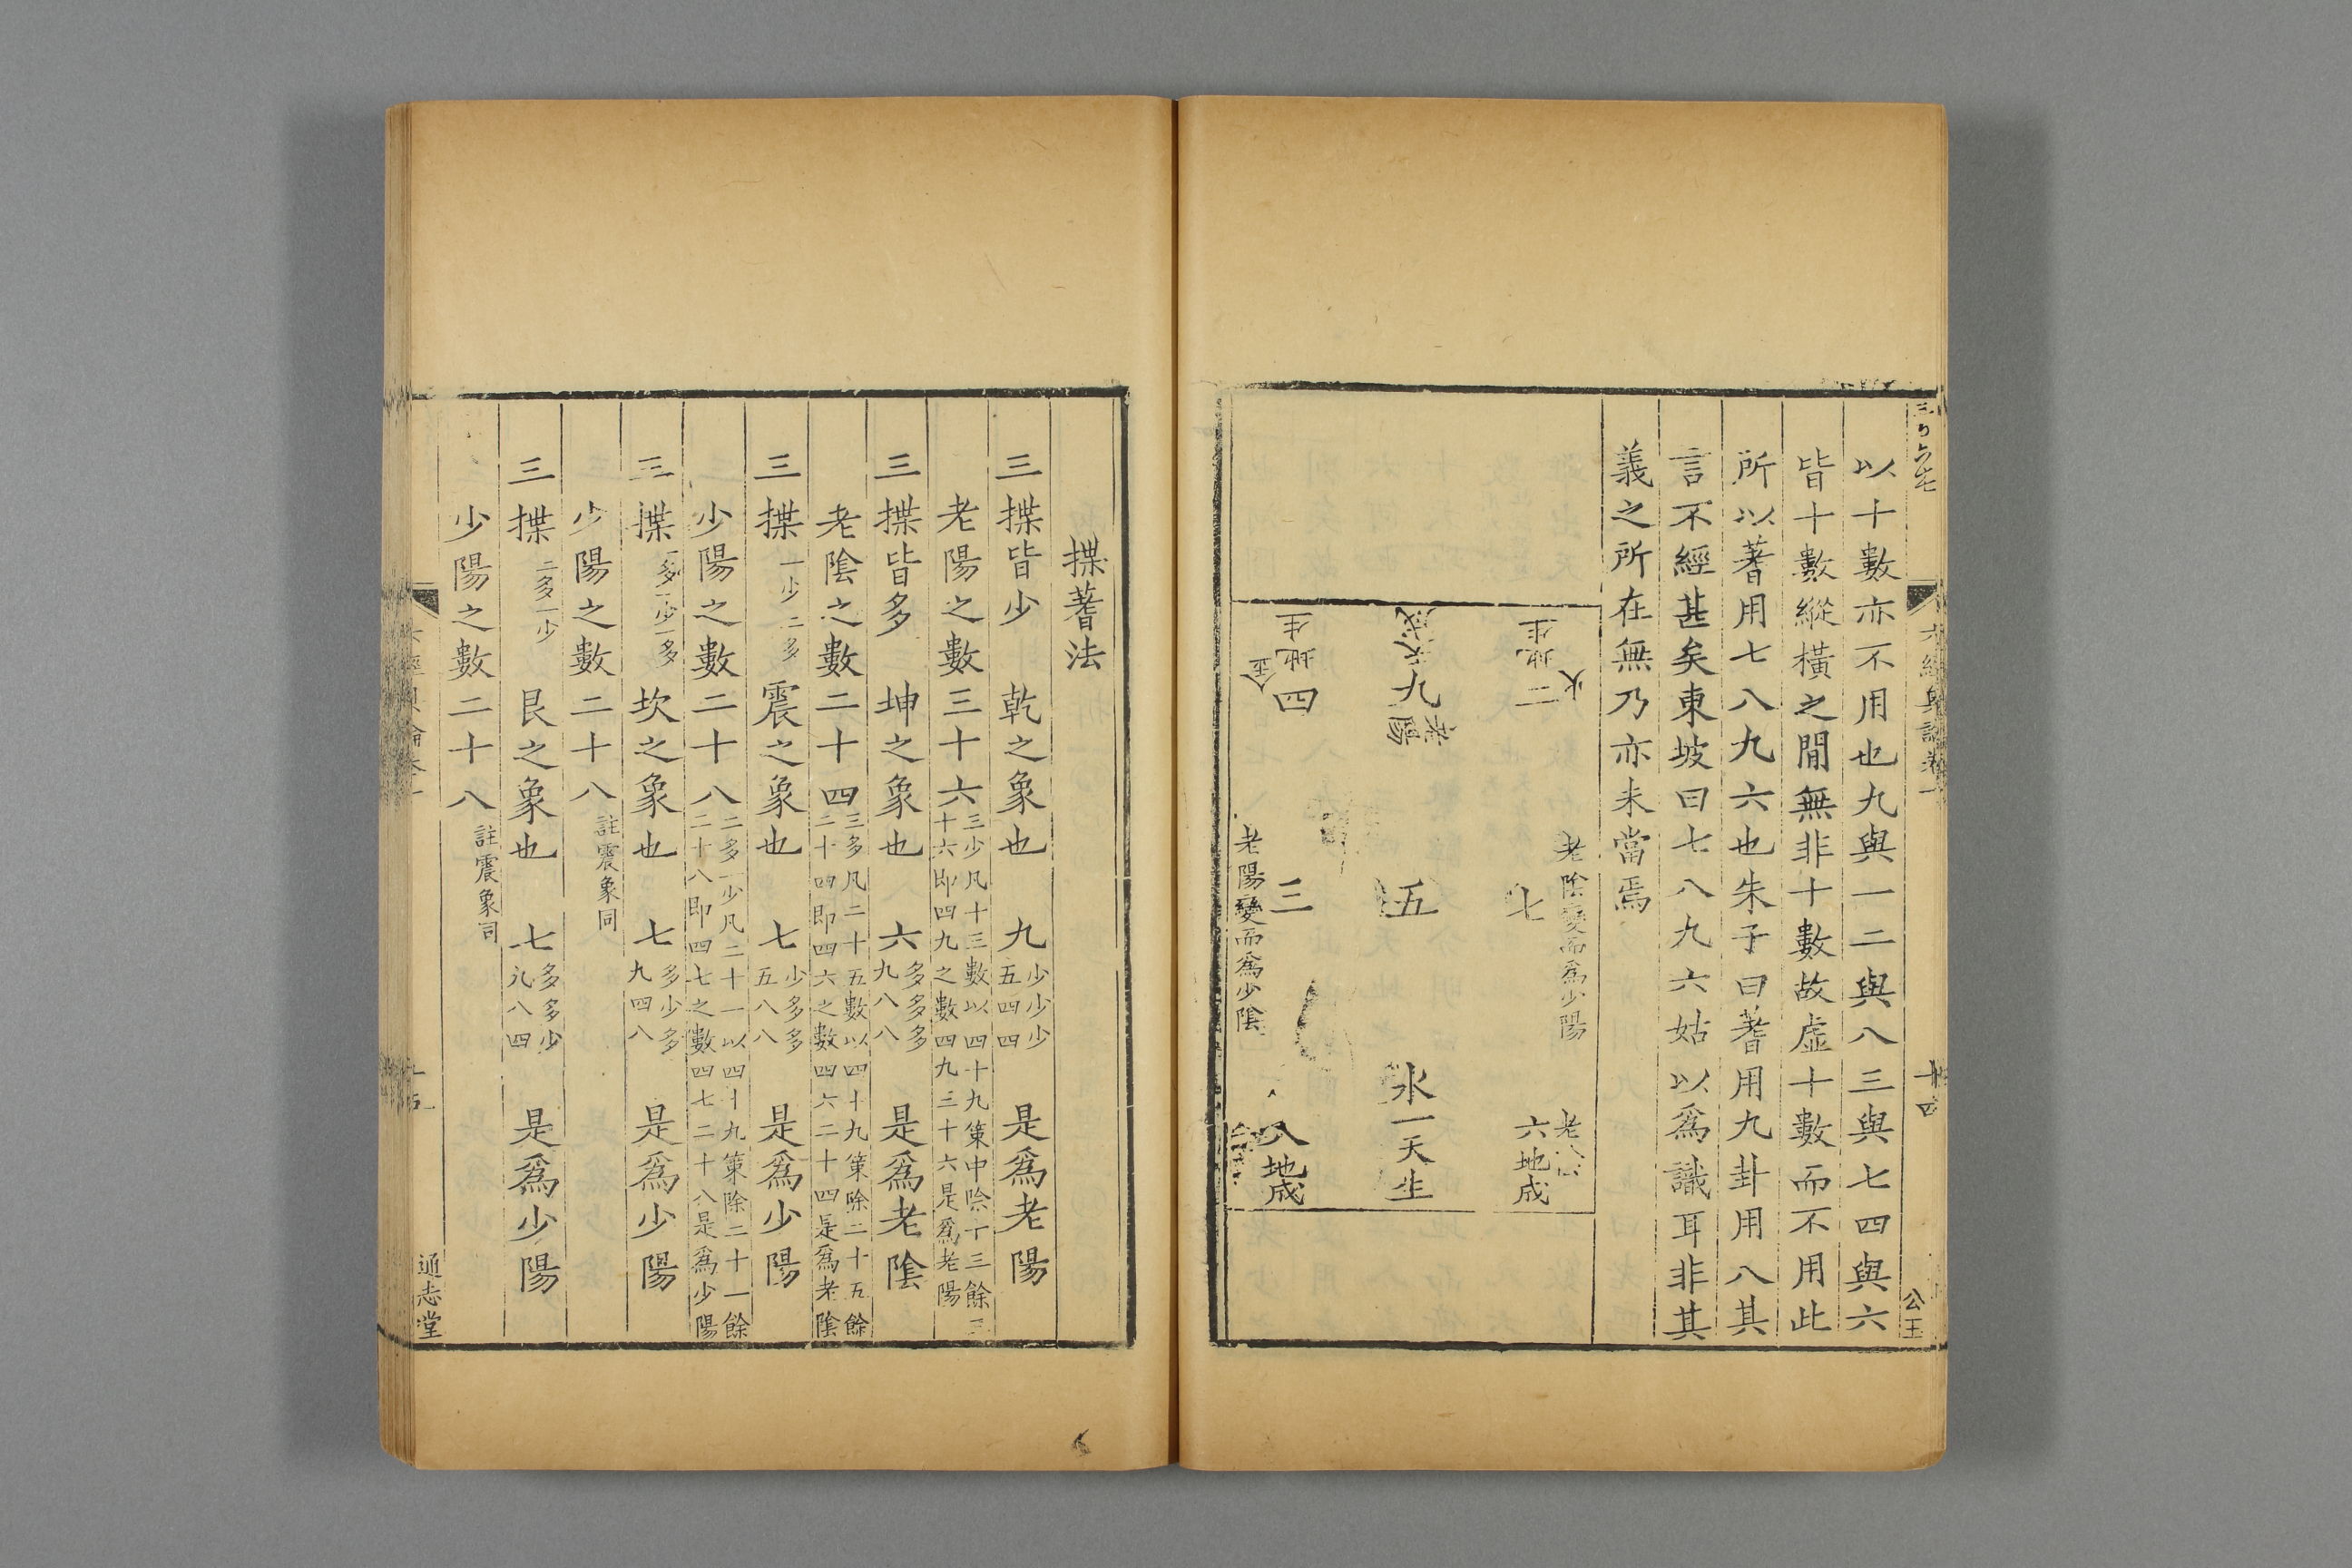 以十數亦不用也九與一二與八三與七四與六
皆十數縱橫之間無非十數故虛十數而不用此
所以蓍用七八九六也朱子曰蓍用九卦用八其
言不經甚矣東坡曰七八九六姑以爲識耳非其
義之所在無乃亦未當焉
火
二地生
老陰變而爲少陽
七
六地成
九天成
老陽
五
水一天生
金
四地生
三
老陽變而爲少陰
八地成
十四
公玉
揲蓍法
三揲皆少 乾之象也 九 少少少 五四四 是爲老陽
老陽之數三十六 三少凡十三數以四十九策中除十三餘三十六即四九之數四九三十六是爲老陽
三揲皆多 坤之象也 六 多多多 九八八 是爲老陰
老陰之數二十四 三多凡二十五數以四十九策除二十五餘二十四即四六之數四六二十四是爲老陰
三揲 一少二多 震之象也 七 少多多 五八八 是爲少陽
少陽之數二十八 二多一少凡二十一以四十九策除二十一餘二十八即四七之數四七二十八是爲少陽
三揲 一多一少一多 坎之象也 七 多少多 九四八 是爲少陽
少陽之數二十八 註震象同
三揲 二多一少 艮之象也 七 多多少 九八四 是爲少陽
少陽之數二十八 註震象同
通志堂